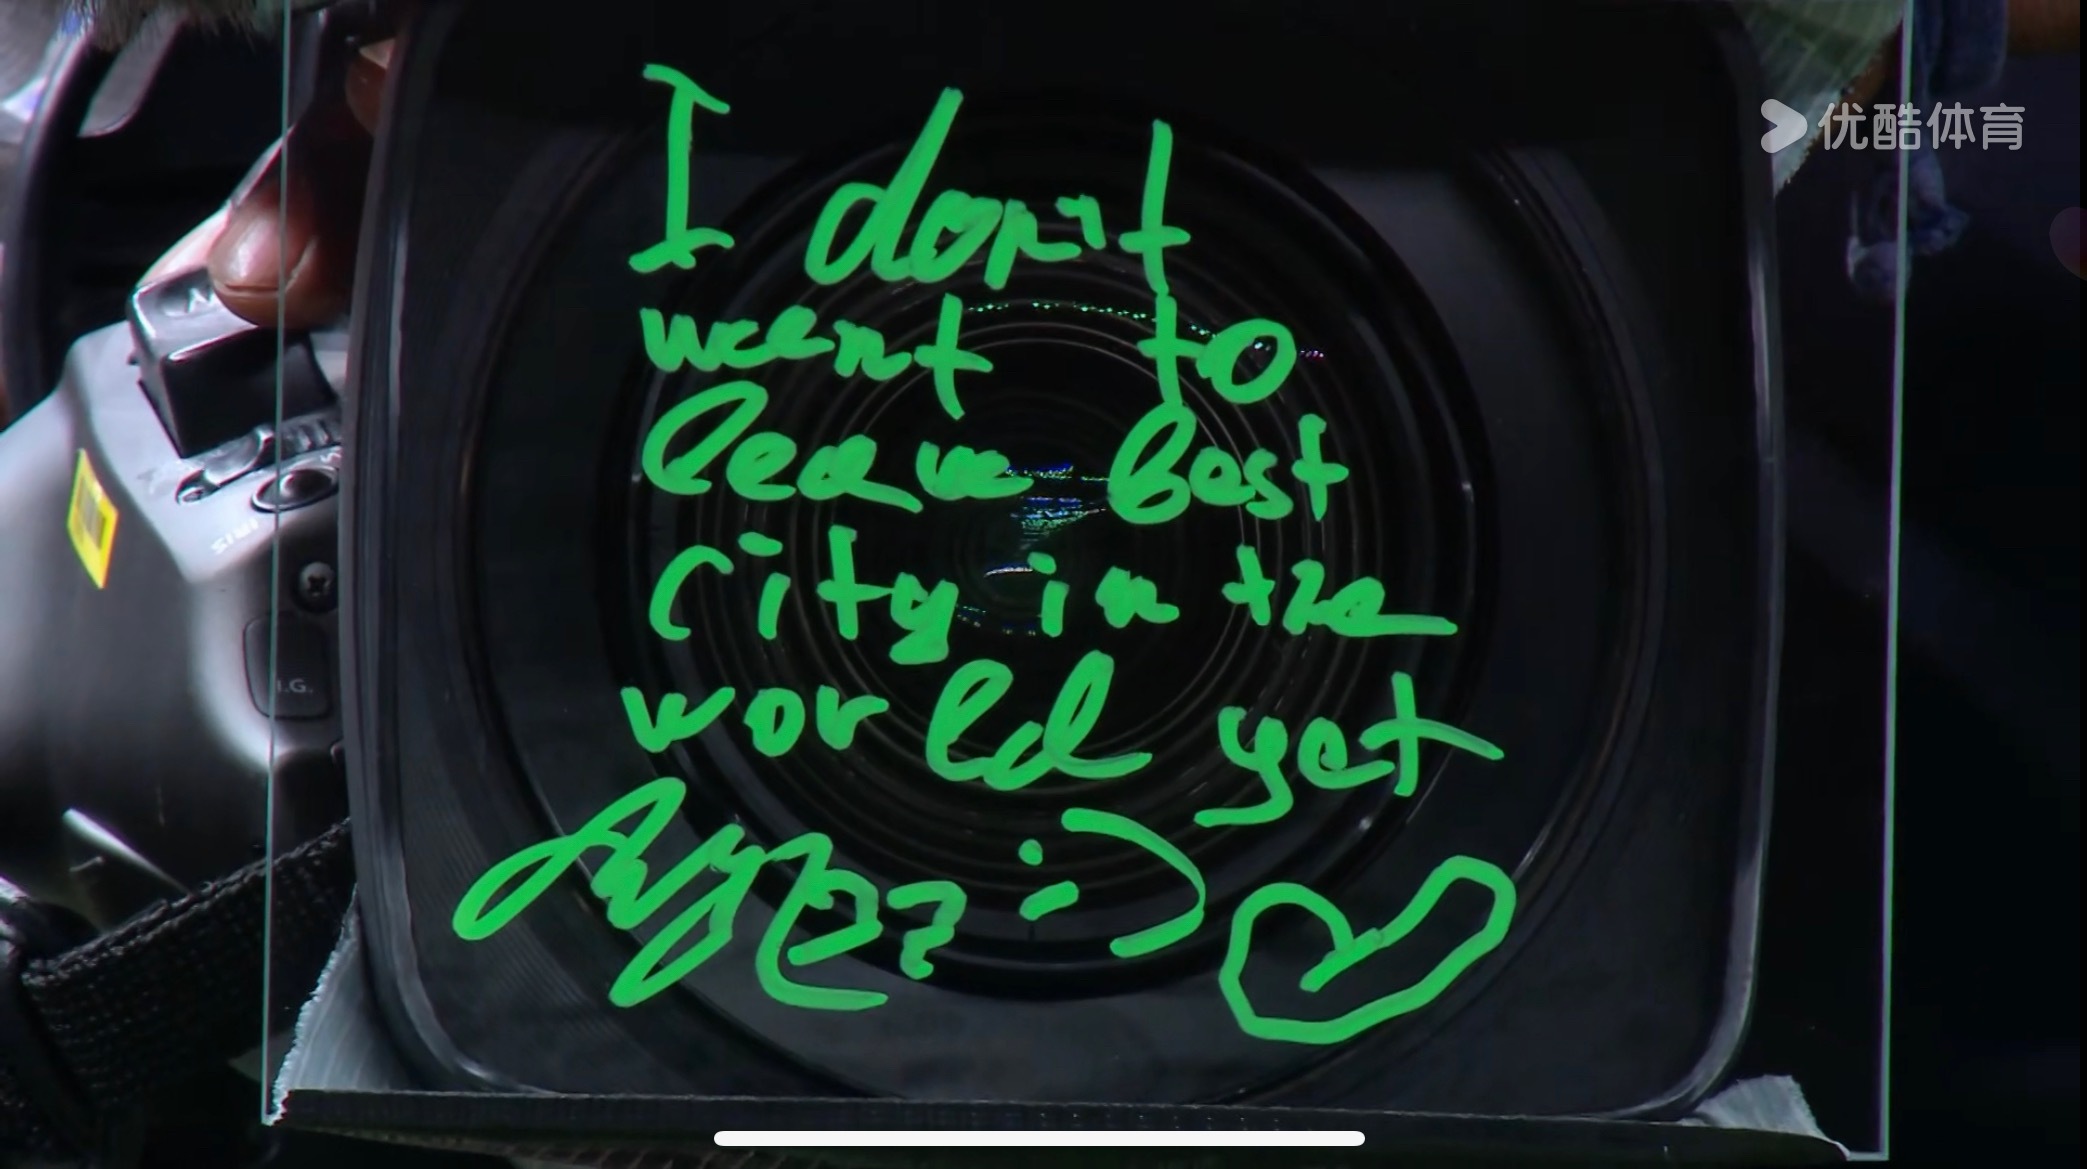 优酷体育
I don't
want to
leave best
city in the
world yet
:)
IRIS
I.G.